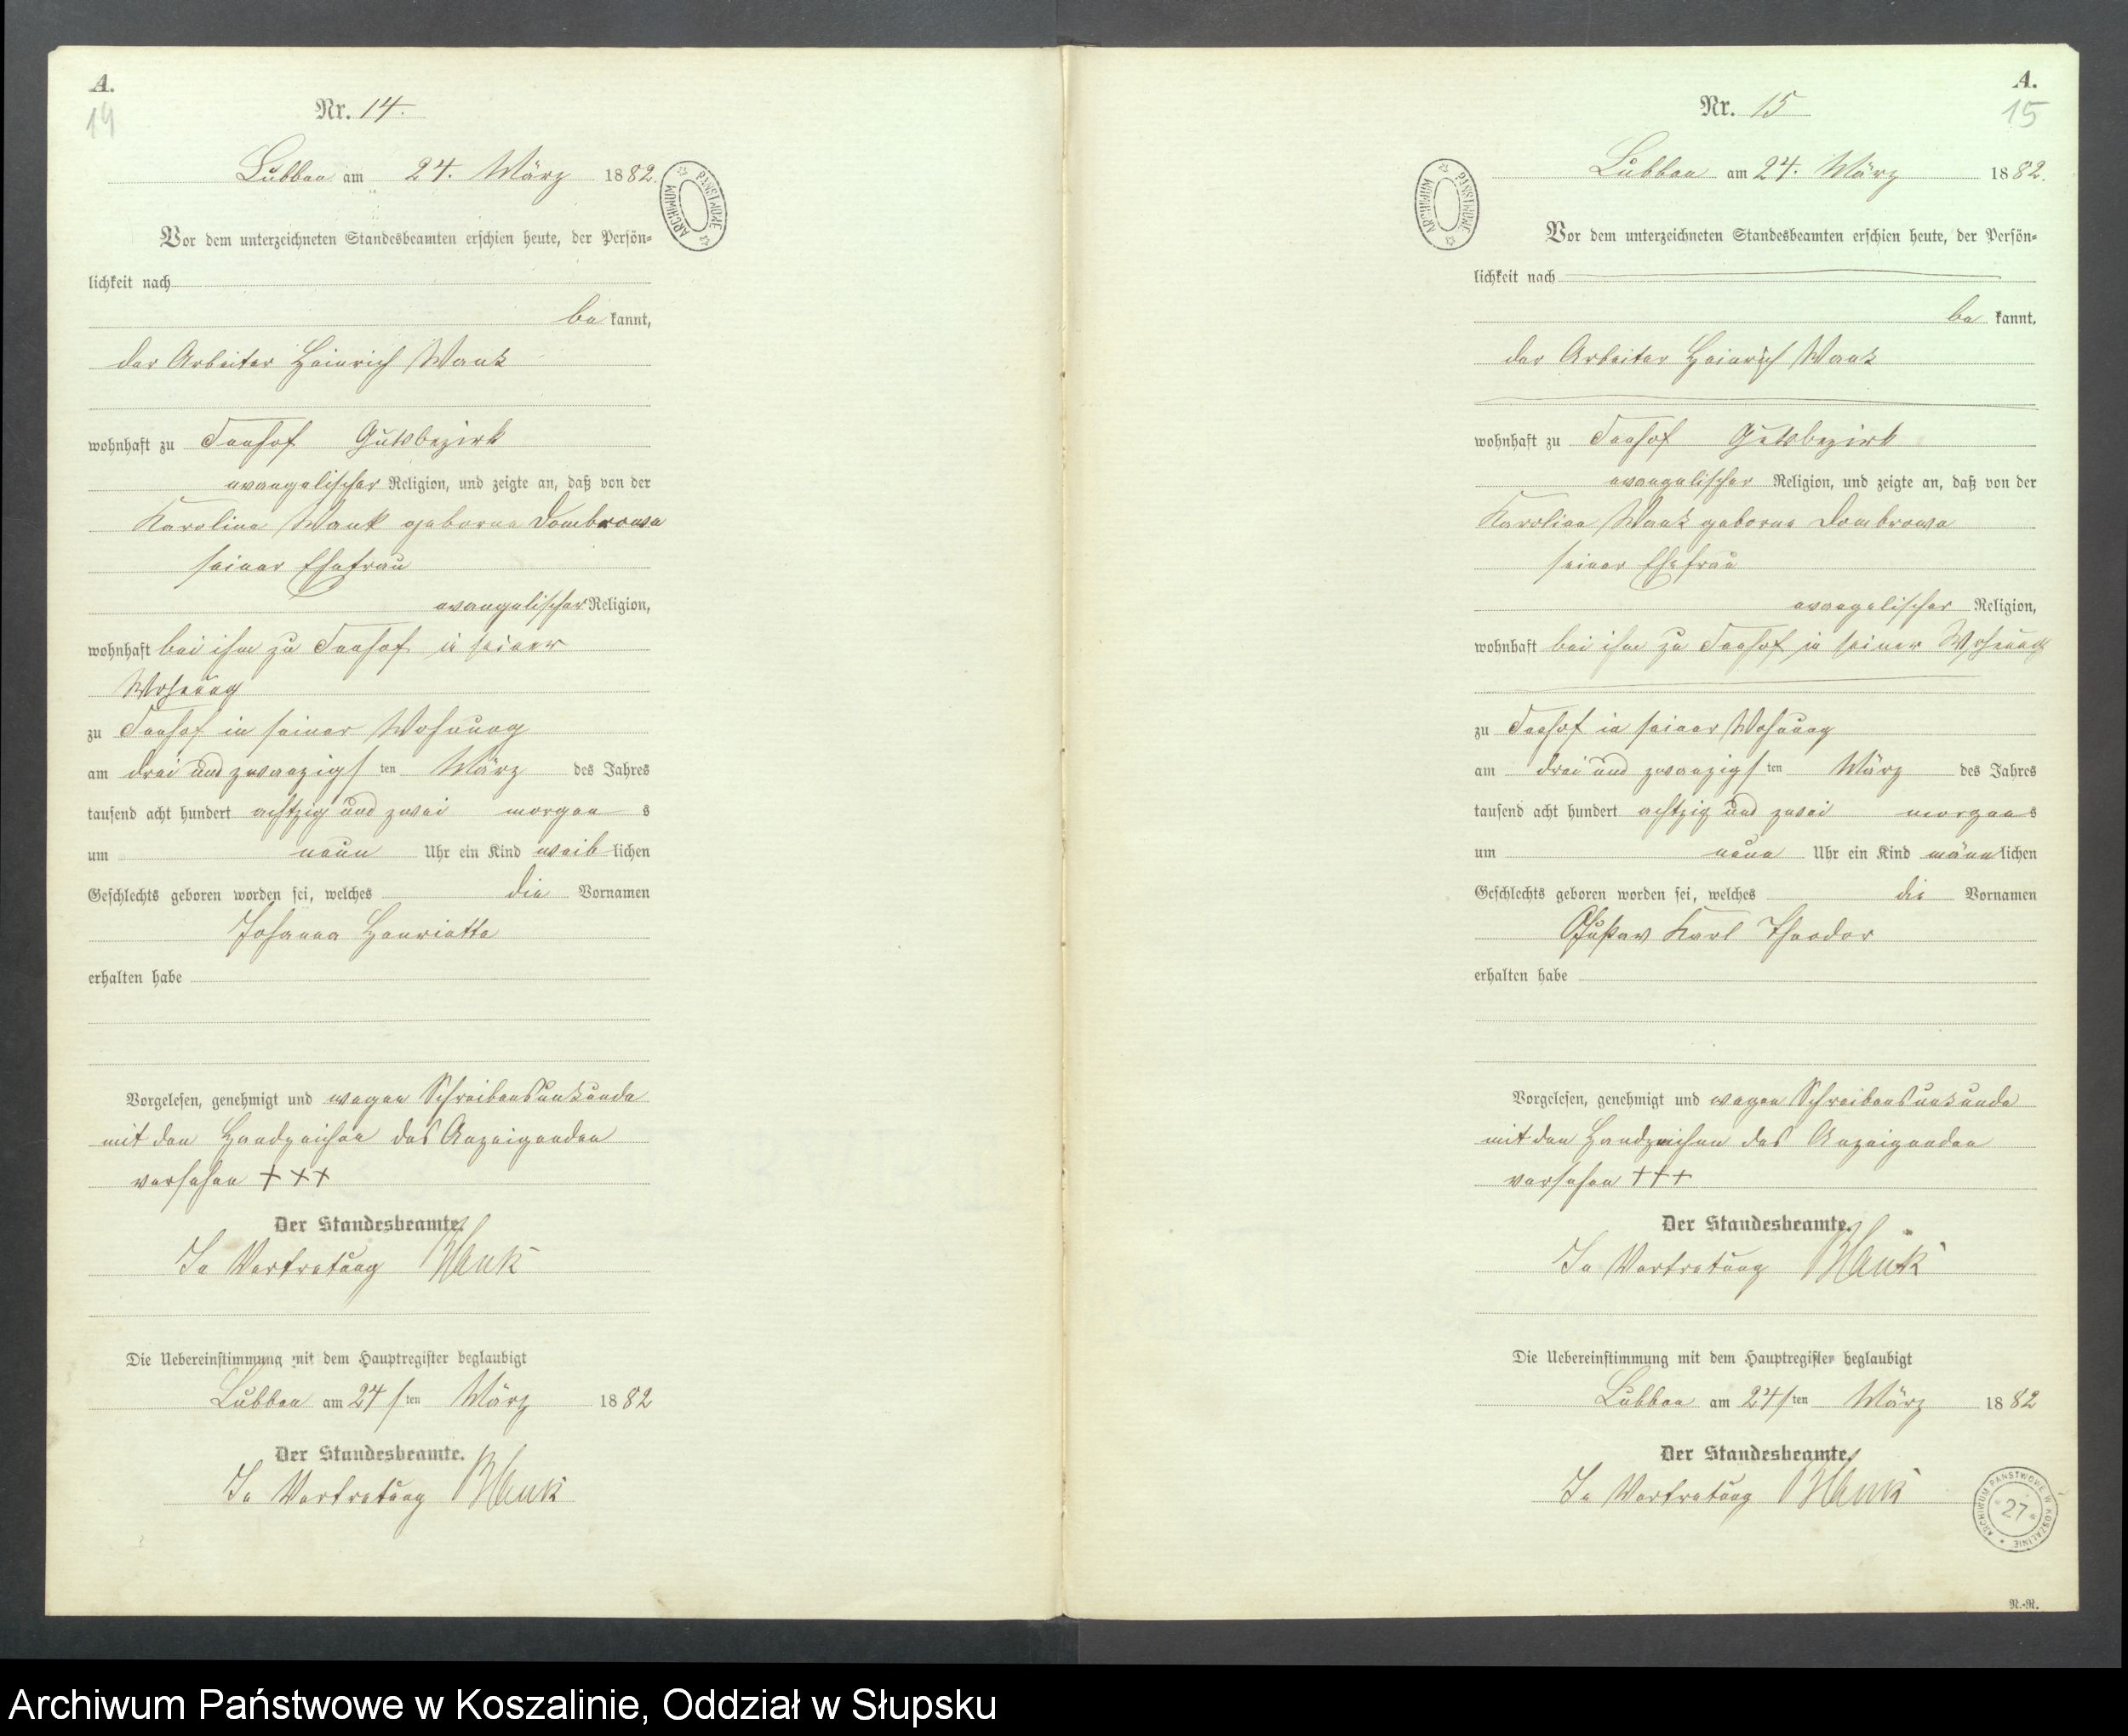 A.
14
Nr. 14.
Lubben am 24. März 1882.
ARCHIWUM PAŃSTWOWE
Vor dem unterzeichneten Standesbeamten erschien heute, der Persön-
lichkeit nach
be kannt,
der Arbeiter Heinrich Wank
wohnhaft zu Seehof Gutsbezirk
evangelischer Religion, und zeigte an, daß von der
Karoline Wank geborne Dombrowa
seiner Ehefrau
evangelischer Religion,
wohnhaft bei ihm zu Seehof in seiner
Wohnung
zu Seehof in seiner Wohnung
am drei und zwanzigsten März des Jahres
tausend acht hundert achtzig und zwei morgens
um neun Uhr ein Kind weiblichen
Geschlechts geboren worden sei, welches die Vornamen
Johanna Henriette
erhalten habe
Vorgelesen, genehmigt und wegen Schreibensunkunde
mit den Handzeichen des Anzeigenden
versehen + + +
Der Standesbeamte.
In Vertretung
Die Uebereinstimmung mit dem Hauptregister beglaubigt
Lubben am 24sten März 1882
Der Standesbeamte.
In Vertretung
A.
15
Nr. 15
Lubben am 24. März 1882.
ARCHIWUM PAŃSTWOWE
Vor dem unterzeichneten Standesbeamten erschien heute, der Persön-
lichkeit nach
be kannt,
der Arbeiter Heinrich Wank
wohnhaft zu Seehof Gutsbezirk
evangelischer Religion, und zeigte an, daß von der
Karoline Wank geborne Dombrowa
seiner Ehefrau
evangelischer Religion,
wohnhaft bei ihm zu Seehof in seiner Wohnung
zu Seehof in seiner Wohnung
am drei und zwanzigsten März des Jahres
tausend acht hundert achtzig und zwei morgens
um neun Uhr ein Kind männlichen
Geschlechts geboren worden sei, welches die Vornamen
Gustav Karl Theodor
erhalten habe
Vorgelesen, genehmigt und wegen Schreibensunkunde
mit den Handzeichen des Anzeigenden
versehen + + +
Der Standesbeamte.
In Vertretung
Die Uebereinstimmung mit dem Hauptregister beglaubigt
Lubben am 24sten März 1882
Der Standesbeamte.
In Vertretung
ARCHIWUM PAŃSTWOWE W KOSZALINIE
27
R.-R.
Archiwum Państwowe w Koszalinie, Oddział w Słupsku